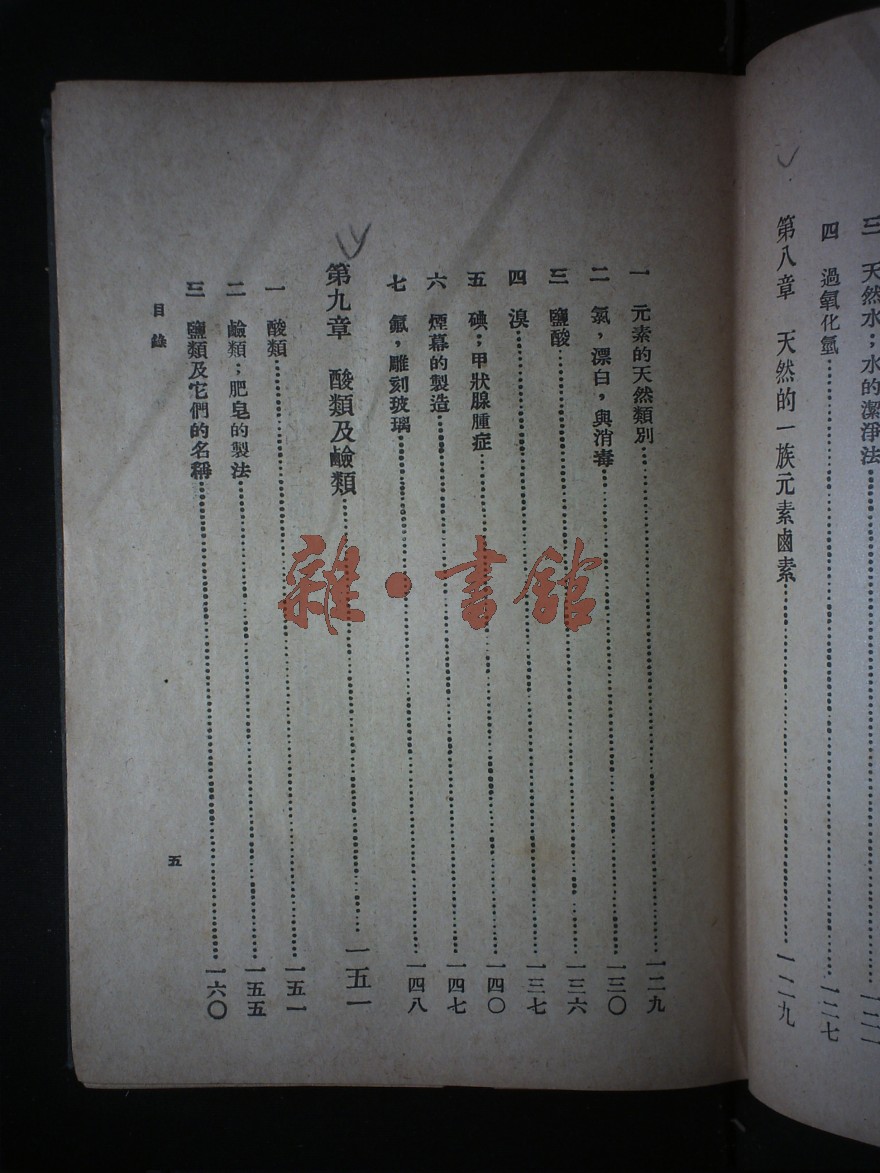 三　天然水；水的潔淨法……一二一
四　過氧化氫……一二七
第八章　天然的一族元素鹵素……一二九
一　元素的天然類別……一二九
二　氯，漂白，與消毒……一三〇
三　鹽酸……一三六
四　溴……一三七
五　碘；甲狀腺腫症……一四〇
六　煙幕的製造……一四七
七　氟，雕刻玻璃……一四八
第九章　酸類及鹼類……一五一
一　酸類……一五一
二　鹼類；肥皂的製法……一五五
三　鹽類及它們的名稱……一六〇
目錄
五
雜·書館